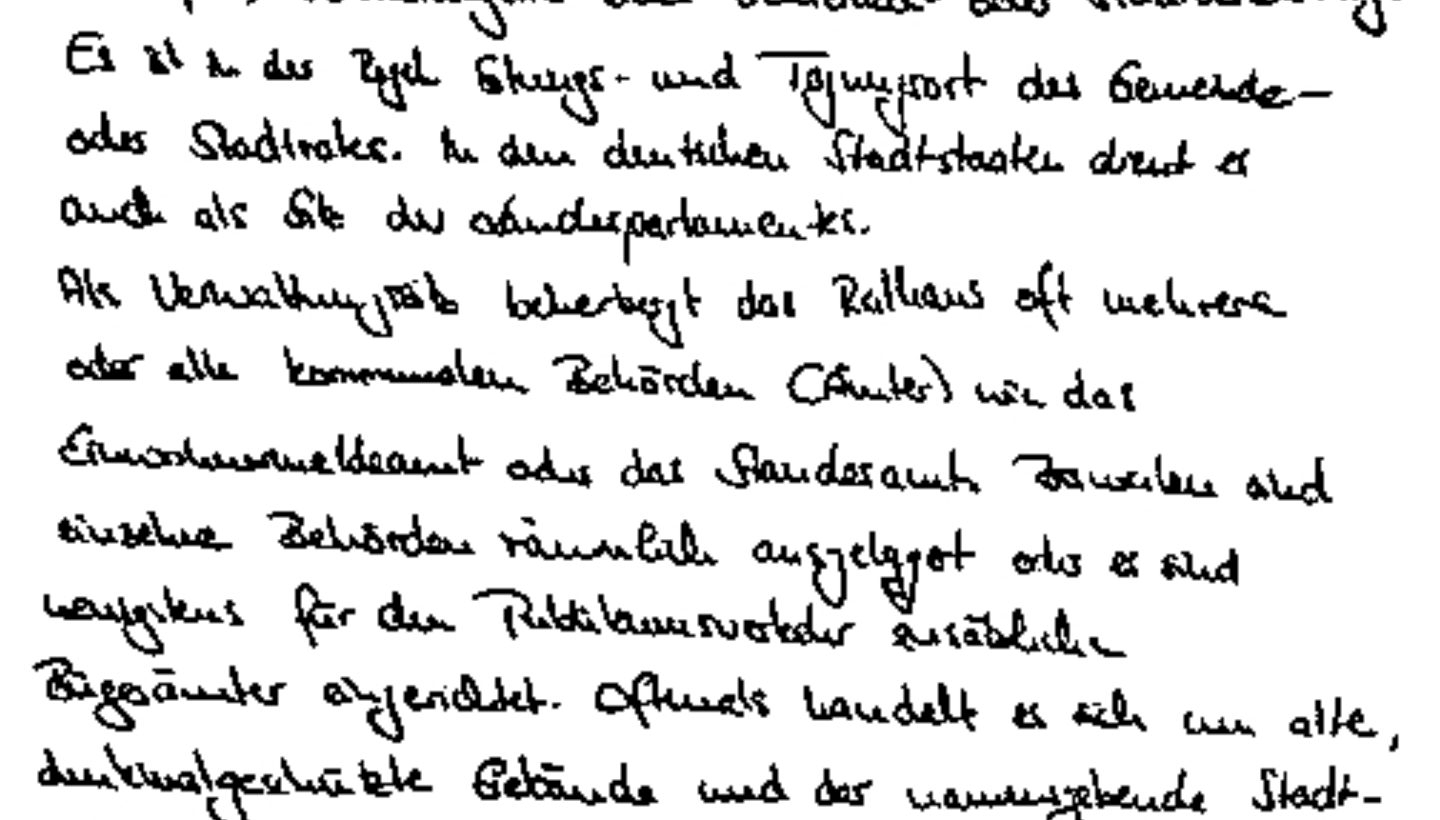 oder
Es ist in der Regel Sitzungs- und Tagungsort des Gemeinde-
oder Stadtrates. In den deutschen Stadtstaaten dient es
auch als Sitz des Landesparlamentes.
Als Verwaltungssitz beherbergt das Rathaus oft mehrere
oder alle kommunalen Behörden (Ämter) wie das
Einwohnermeldeamt oder das Standesamt. Bisweilen sind
einzelne Behörden räumlich ausgelagert oder es sind
wenigstens für den Publikumsverkehr zusätzliche
Bürgerämter eingerichtet. Oftmals handelt es sich um alte,
denkmalgeschützte Gebäude und der namensgebende Stadt-